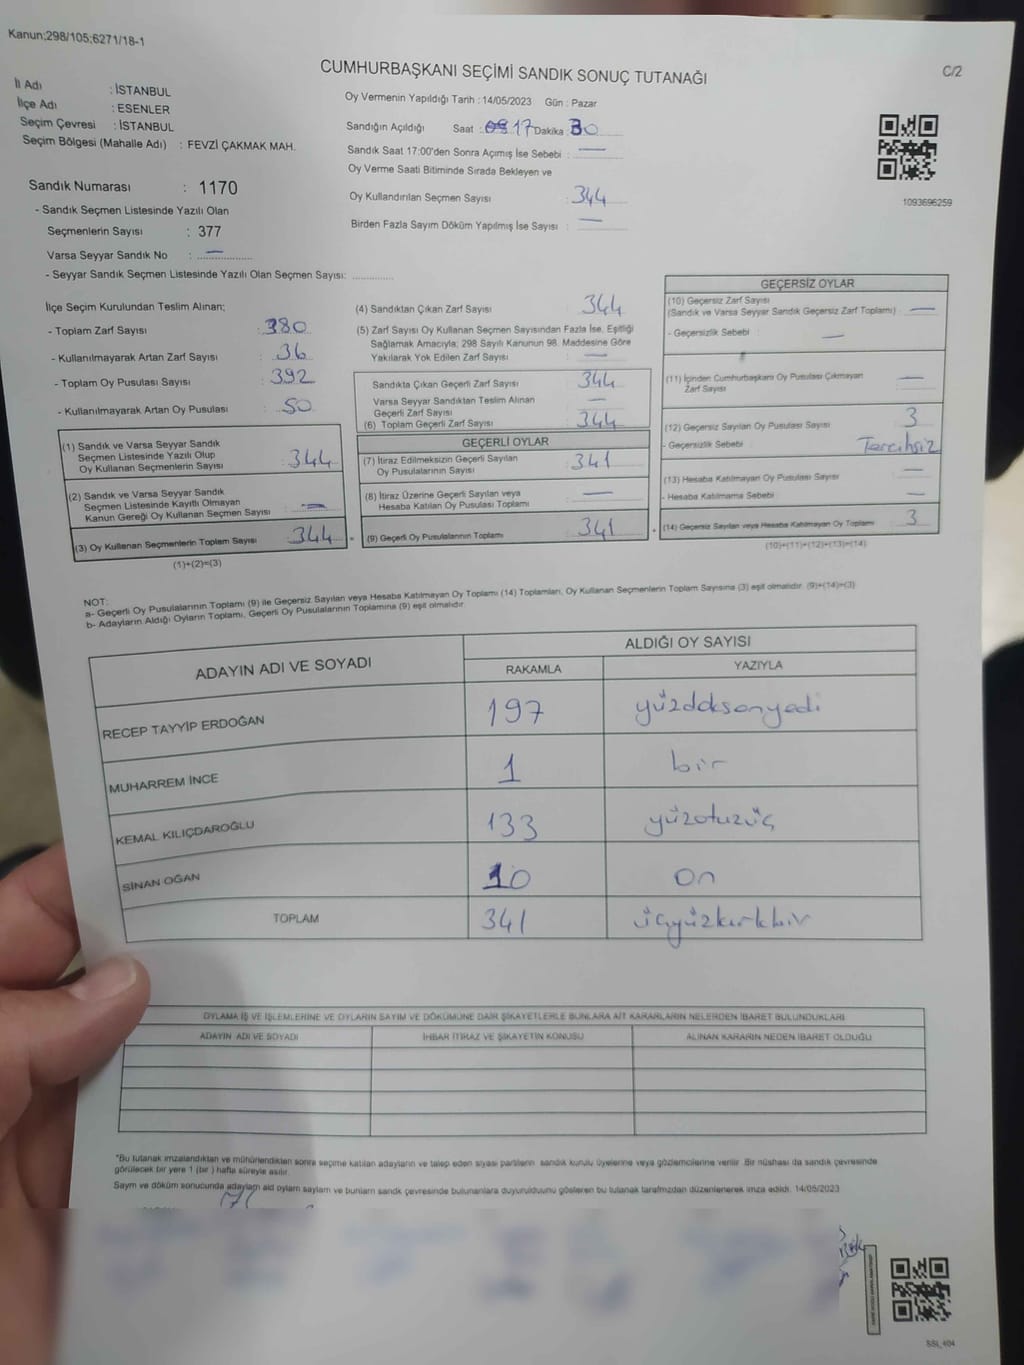 Kanun;298/105;6271/18-1
CUMHURBAŞKANI SEÇİMİ SANDIK SONUÇ TUTANAĞI
C/2
İl Adı : İSTANBUL
İlçe Adı : ESENLER
Seçim Çevresi : İSTANBUL
Seçim Bölgesi (Mahalle Adı) : FEVZİ ÇAKMAK MAH.
Sandık Numarası : 1170
- Sandık Seçmen Listesinde Yazılı Olan
Seçmenlerin Sayısı : 377
Varsa Seyyar Sandık No : —
- Seyyar Sandık Seçmen Listesinde Yazılı Olan Seçmen Sayısı: ............
Oy Vermenin Yapıldığı Tarih : 14/05/2023 Gün : Pazar
Sandığın Açıldığı Saat : 17 Dakika : 30
Sandık Saat 17:00'den Sonra Açımış İse Sebebi : —
Oy Verme Saati Bitiminde Sırada Bekleyen ve
Oy Kullandırılan Seçmen Sayısı : 344
Birden Fazla Sayım Döküm Yapılmış İse Sayısı : —
1093696259
İlçe Seçim Kurulundan Teslim Alınan;
- Toplam Zarf Sayısı : 380
- Kullanılmayarak Artan Zarf Sayısı : 36
- Toplam Oy Pusulası Sayısı : 392
- Kullanılmayarak Artan Oy Pusulası : 50
(1) Sandık ve Varsa Seyyar Sandık
Seçmen Listesinde Yazılı Olup
Oy Kullanan Seçmenlerin Sayısı : 344
(2) Sandık ve Varsa Seyyar Sandık
Seçmen Listesinde Kayıtlı Olmayan
Kanun Gereği Oy Kullanan Seçmen Sayısı : —
(3) Oy Kullanan Seçmenlerin Toplam Sayısı : 344
(1)+(2)=(3)
(4) Sandıktan Çıkan Zarf Sayısı : 344
(5) Zarf Sayısı Oy Kullanan Seçmen Sayısından Fazla İse, Eşitliği
Sağlamak Amacıyla; 298 Sayılı Kanunun 98. Maddesine Göre
Yakılarak Yok Edilen Zarf Sayısı : —
Sandıkta Çıkan Geçerli Zarf Sayısı : 344
Varsa Seyyar Sandıktan Teslim Alınan
Geçerli Zarf Sayısı : —
(6) Toplam Geçerli Zarf Sayısı : 344
GEÇERLİ OYLAR
(7) İtiraz Edilmeksizin Geçerli Sayılan
Oy Pusulalarının Sayısı : 341
(8) İtiraz Üzerine Geçerli Sayılan veya
Hesaba Katılan Oy Pusulası Toplamı : —
(9) Geçerli Oy Pusulalarının Toplamı : 341
GEÇERSİZ OYLAR
(10) Geçersiz Zarf Sayısı
(Sandık ve Varsa Seyyar Sandık Geçersiz Zarf Toplamı) : —
- Geçersizlik Sebebi : —
(11) İçinden Cumhurbaşkanı Oy Pusulası Çıkmayan
Zarf Sayısı : —
(12) Geçersiz Sayılan Oy Pusulası Sayısı : 3
- Geçersizlik Sebebi : Tercihsiz
(13) Hesaba Katılmayan Oy Pusulası Sayısı : —
- Hesaba Katılmama Sebebi : —
(14) Geçersiz Sayılan veya Hesaba Katılmayan Oy Toplamı : 3
(10)+(11)+(12)+(13)=(14)
NOT:
a- Geçerli Oy Pusulalarının Toplamı (9) ile Geçersiz Sayılan veya Hesaba Katılmayan Oy Toplamı (14) Toplamları, Oy Kullanan Seçmenlerin Toplam Sayısına (3) eşit olmalıdır. (9)+(14)=(3)
b- Adayların Aldığı Oyların Toplamı, Geçerli Oy Pusulalarının Toplamına (9) eşit olmalıdır.
ADAYIN ADI VE SOYADI
ALDIĞI OY SAYISI
RAKAMLA YAZIYLA
RECEP TAYYİP ERDOĞAN 197 yüzdoksanyedi
MUHARREM İNCE 1 bir
KEMAL KILIÇDAROĞLU 133 yüzotuzüç
SİNAN OĞAN 10 on
TOPLAM 341 üçyüzkırkbir
OYLAMA İŞ VE İŞLEMLERİNE VE OYLARIN SAYIM VE DÖKÜMÜNE DAİR ŞİKAYETLERLE BUNLARA AİT KARARLARIN NELERDEN İBARET BULUNDUKLARI
ADAYIN ADI VE SOYADI İHBAR İTİRAZ VE ŞİKAYETİN KONUSU ALINAN KARARIN NEDEN İBARET OLDUĞU
*Bu tutanak imzalandıktan ve mühürlendikten sonra seçime katılan adayların ve talep eden siyasi partilerin sandık kurulu üyelerine veya gözlemcilerine verilir. Bir nüshası da sandık çevresinde
görülecek bir yere 1 (bir ) hafta süreyle asılır.
Sayım ve döküm sonucunda adayların aldığı oyların sayıları ve bunların sandık çevresinde bulunanlara duyurulduğunu gösteren bu tutanak tarafımızdan düzenlenerek imza edildi. 14/05/2023
SSL 404